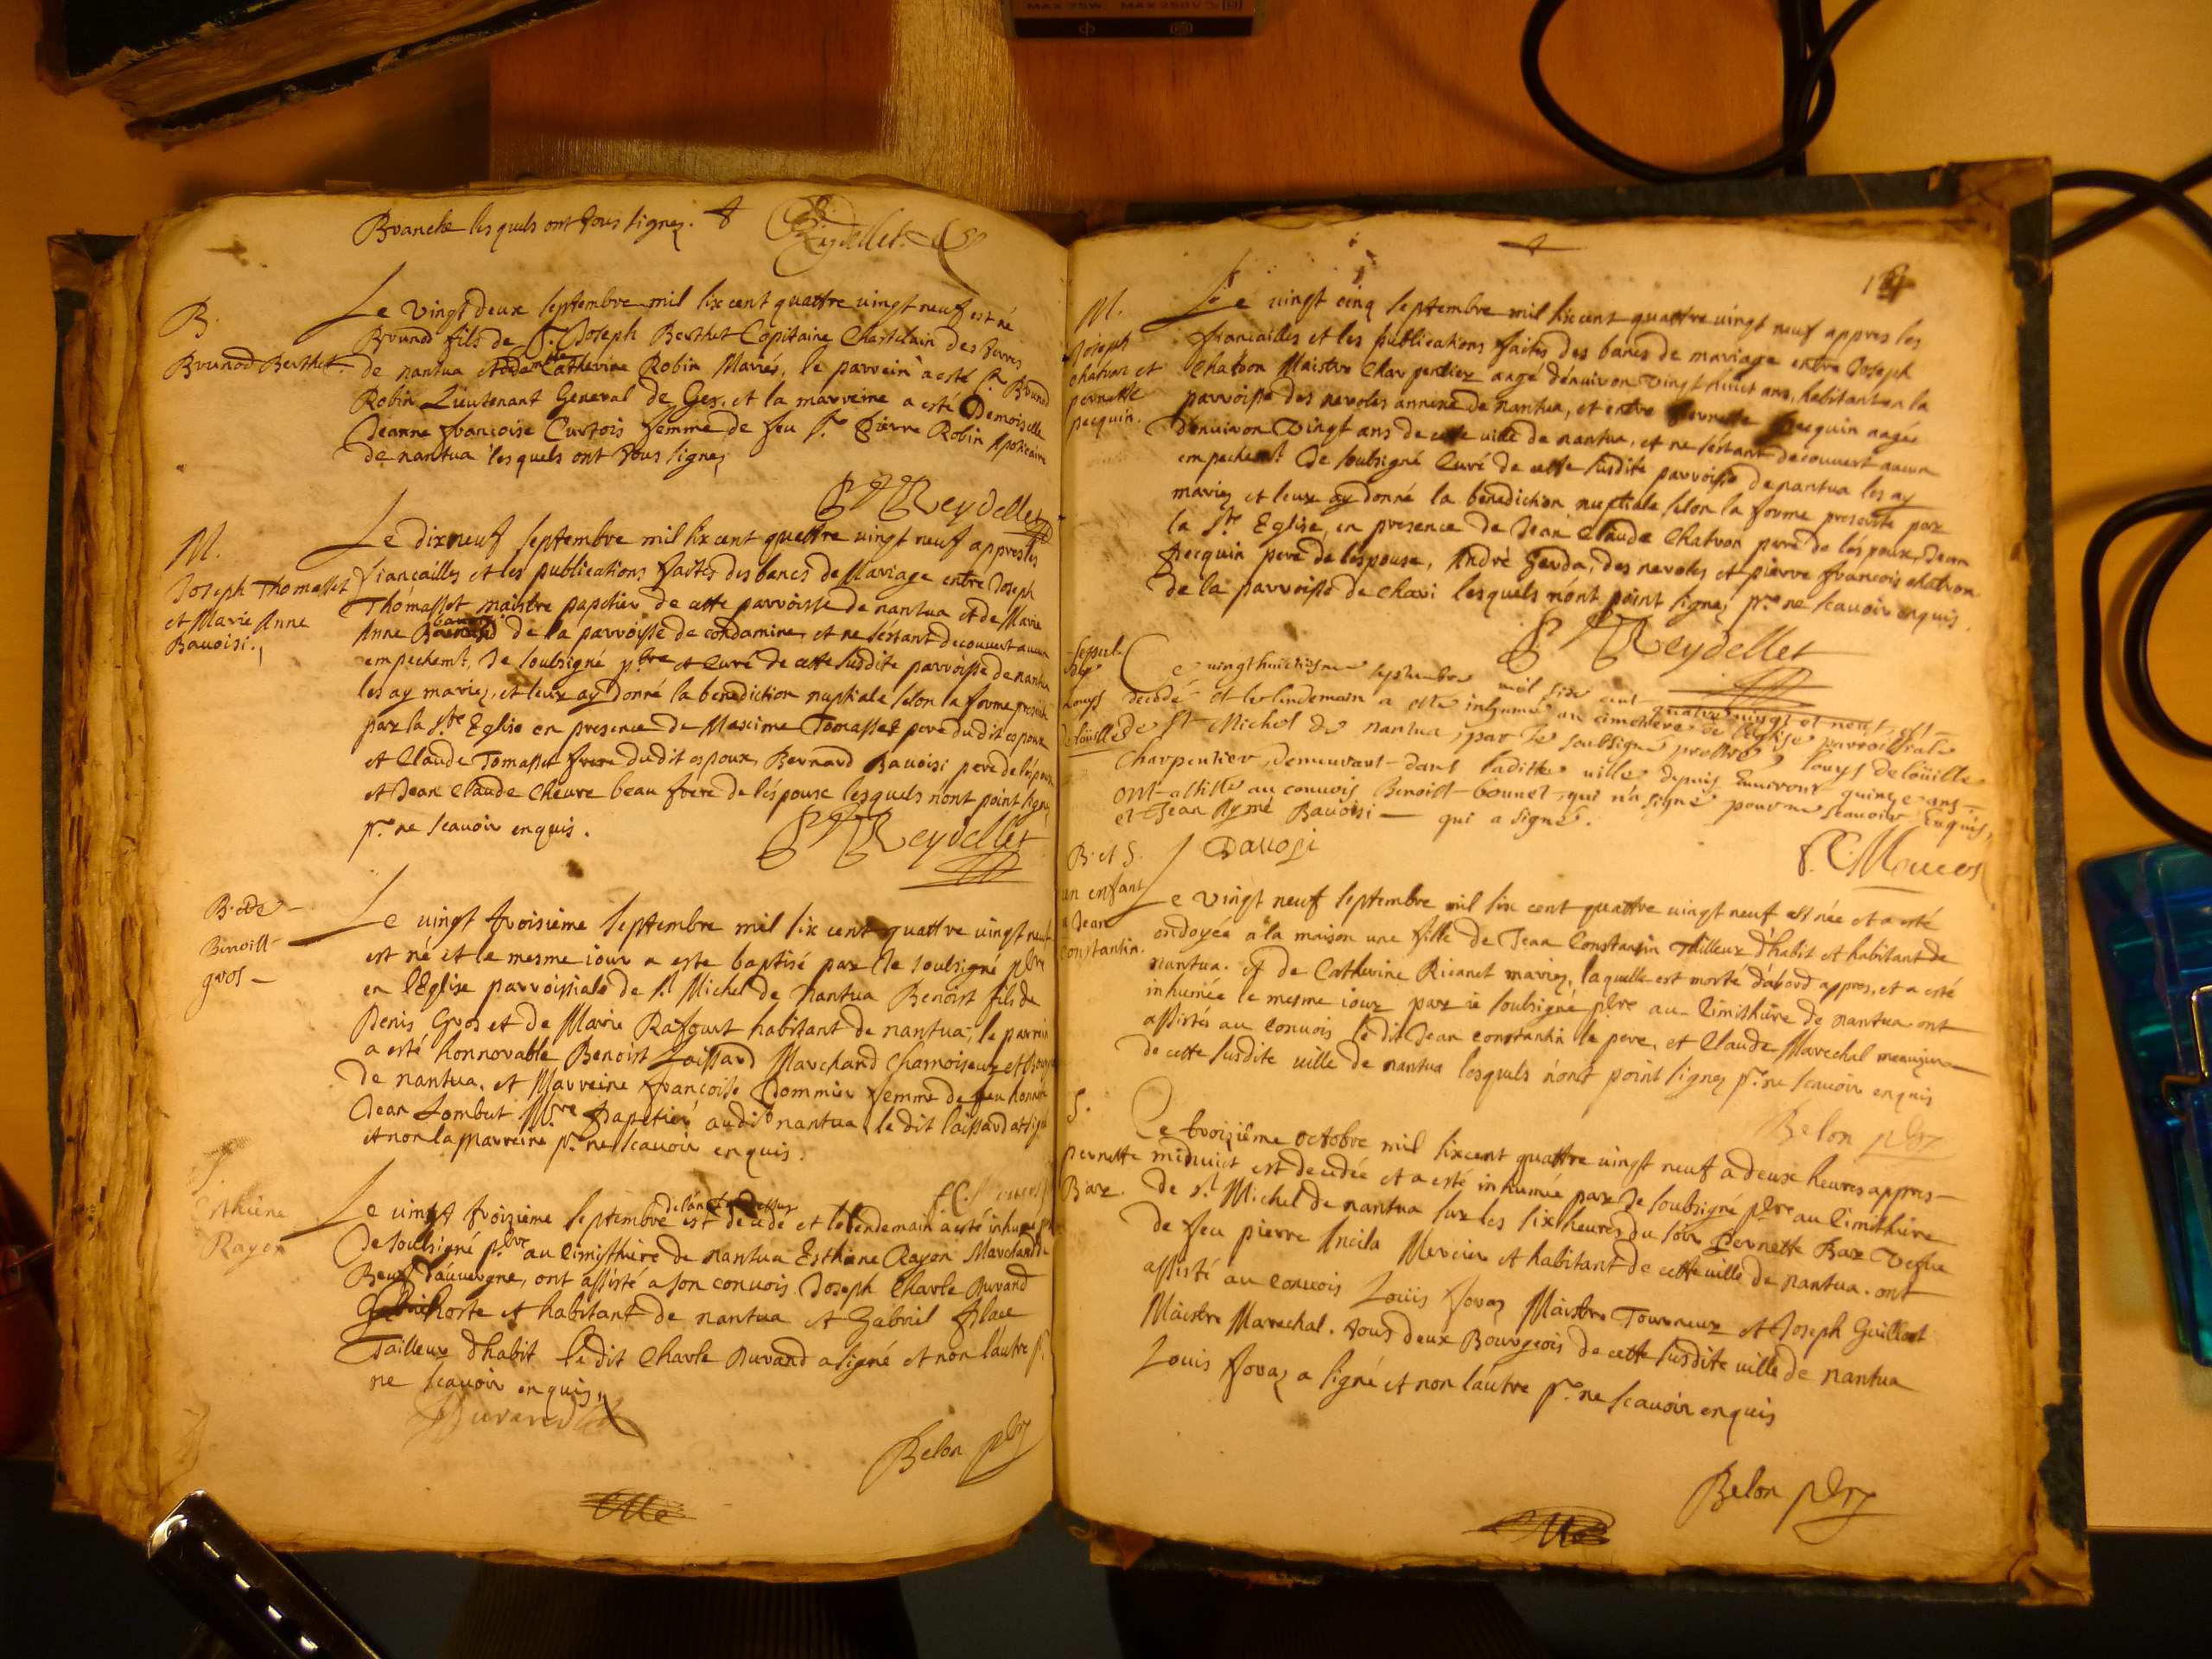 MAX 75W MAX 250V
Branche lesquels ont tous signez. Reydellet
B.
Brunod Berthet.
Le vingt deux septembre mil six cent quattre vingt neuf est né
Brunod fils de Sr. Joseph Berthet Capitaine Chastelain des terres
de nantua et de Catherine Robin Mariés, le parrein a esté Sr. Brunod
Robin Lieutenant General de Gex, et la marreine a esté Demoiselle
Jeanne françoise Curtois femme de feu Sr. Pierre Robin Apoticaire
de nantua lesquels ont tous signez
Reydellet
M.
Joseph Thomasset
et Marie Anne
Bavoisi.
Le dixneuf septembre mil six cent quattre vingt neuf appres les
fiancailles et les publications faites des bancs de Mariage entre Joseph
Thomasset maistre papetier de cette parroisse de nantua et de Marie
Anne de la parroisse de condamine, et ne s'éstant decouvert aucun
empechemt. Je soubsigné pbre et Curé de cette susdite parroisse de nantua
les ay mariez, et leur ay donné la benediction nuptiale selon la forme prescrite
par la Ste Eglise en presence de Maxime Tomasset pere dudit espoux
et Claude Tomasset frere dudit espoux, Bernard Bavoisi pere de l'épouse
et Jean Claude Cheure beau frere de l'épouse lesquels nont point signé
pr. ne scavoir enquis.
Reydellet
B. de
Benoist
gros
Le vingt troisieme septembre mil six cent quattre vingt neuf
est né et le mesme iour a este baptisé par Je soubsigné pbre
en l'Eglise parroissiale de St Michel de Nantua Benoist fils de
Denis Gros et de Marie Rafourt habitant de nantua, le parrein
a esté honnorable Benoist Laissard Marchand Chamoiseur et bourg
de nantua, et Marreine françoise Pommier femme de feu honno
Jean Lombut Mre Papetier audit nantua, le dit laissard a signé
et non la marreine pr. ne scavoir enquis.
S.
Esthiene
Rayon
Le vingt troizieme septembre de lan est decedé et le lendemain a esté inhumé par
Je soubsigné pbre au cimisthiere de nantua Esthiene Rayon Marchand de
Beuf d'auvergne, ont assisté a son convois Joseph Charle Durand
horte et habitant de nantua et Gabriel place
Tailleur d'habit le dit Charle Durand a signé et non l'autre pr.
ne scavoir enquis
Durand
Belon pbre
M.
Joseph
chatron et
pernette
pecquin.
Le vingt cinq septembre mil six cent quattre vingt neuf appres les
fiancailles et les publications faites des bancs de mariage entre Joseph
Chatron Maistre Charpentier aagé d'énuiron vingt huict ans, habitant en la
parroisse des neyroles annexe de nantua, et entre Pernette Pecquin aagée
d'énuiron vingt ans de cette ville de nantua, et ne s'éstant decouvert aucun
empechemt. Je soubsigné Curé de cette susdite parroisse de nantua les ay
mariez et leur ay donné la benediction nuptiale selon la forme prescrite par
la Ste Eglise, en presence de Jean Claude Chatron pere de l'époux, Jean
Pecquin pere de l'espouse, André Gerda, des neyroles et pierre francois chatron
de la parroisse de chari lesquels n'ont point signez pr. ne scavoir enquis.
Reydellet
Sepult.
Louys
delouille
Ce vingt huictiesme septembre mil six cent quatre vingt et neuf, est
decedé et le lendemain a esté inhumé au cimetiere de l'Eglise parroissiale
de St Michel de Nantua, par Je soubsigné prestre, Louys delouille
Charpentier, demeurant dans ladite ville depuis enuiront quinze ans
ont assisté au conuois Benoist bonnet, qui n'a signé pour ne scauoir enquis,
et Jean Aymé Bavoisi qui a signé.
J Bavosi
B. et S.
un enfant
a Jean
Constantin.
Le vingt neuf septembre mil six cent quattre vingt neuf est née et a esté
ondoyée à la maison une fille de Jean Constantin Tailleur d'habit et habitant de
nantua. et de Catherine Ricanet mariez, laquelle est morte d'abord appres, et a esté
inhumée le mesme iour par ie soubsigné pbre au Cimisthiere de nantua ont
assistés au convois le dit Jean constantin le pere, et Claude Marechal menuzier
de cette susdite ville de nantua lesquels n'ont point signez pr. ne scavoir enquis
Belon pbre
S.
Pernette
Bar.
Le troizième octobre mil sixcent quattre vingt neuf a deux heures appres
minuict est decedée et a esté inhumée par Je soubsigné pbre au Cimisthiere
de St Michel de nantua sur les six heures du soir Pernette Bar Vefue
de feu pierre Mercier et habitant de cette ville de nantua. ont
assisté au convois Louis Jovaz Maistre Tourneur et Joseph Guillot
Maistre Marechal. tous deux Bourgeois de cette susdite ville de nantua
Louis Jovaz a signé et non l'autre pr. ne scavoir enquis
Belon pbre